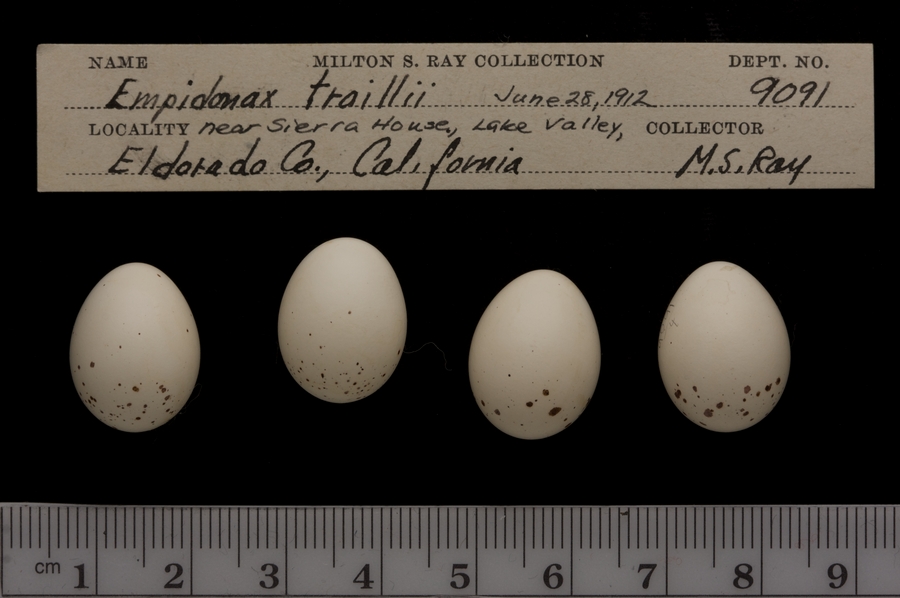 NAME MILTON S. RAY COLLECTION DEPT. NO.
Empidonax traillii June 28, 1912 9091
LOCALITY near Sierra House, Lake Valley, COLLECTOR
Eldorado Co., California M.S. Ray
cm 1 2 3 4 5 6 7 8 9